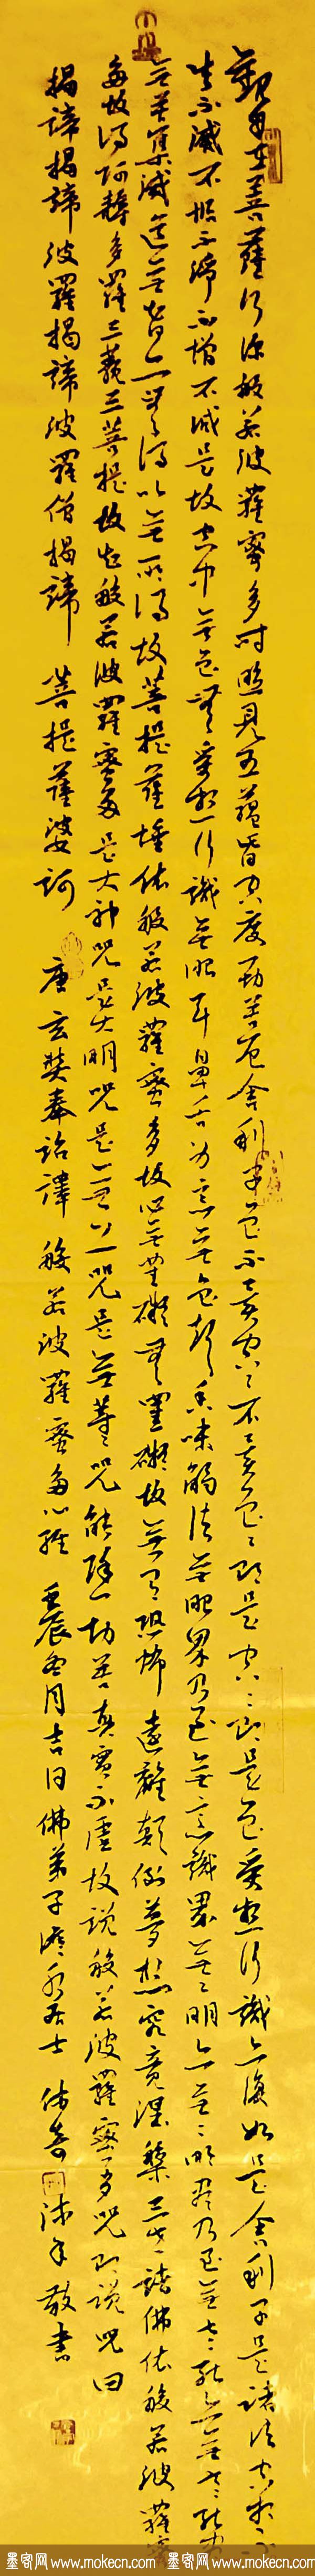 觀自在菩薩行深般若波羅蜜多時照見五蘊皆空度一切苦厄舍利子色不異空〻不異色〻即是空〻即是色受想行識亦復如是舍利子是諸法空相不
生不滅不垢不淨不增不減是故空中無色無受想行識無眼耳鼻舌身意無色聲香味觸法無眼界乃至無意識界無〻明亦無〻明盡乃至無老死亦無老死盡
無苦集滅道無智亦無得以無所得故菩提薩埵依般若波羅蜜多故心無罣礙無罣礙故無有恐怖遠離顛倒夢想究竟涅槃三世諸佛依般若波羅蜜
多故得阿耨多羅三藐三菩提故知般若波羅蜜多是大神咒是大明咒是無上咒是無等〻咒能除一切苦真實不虛故說般若波羅蜜多咒即說咒曰
揭諦揭諦波羅揭諦波羅僧揭諦 菩提薩婆訶 唐玄奘奉詔譯 般若波羅蜜多心經 壬辰冬月吉日佛弟子居士 沐手敬書
墨客网 www.mokecn.com 墨客网 www.mokecn.com